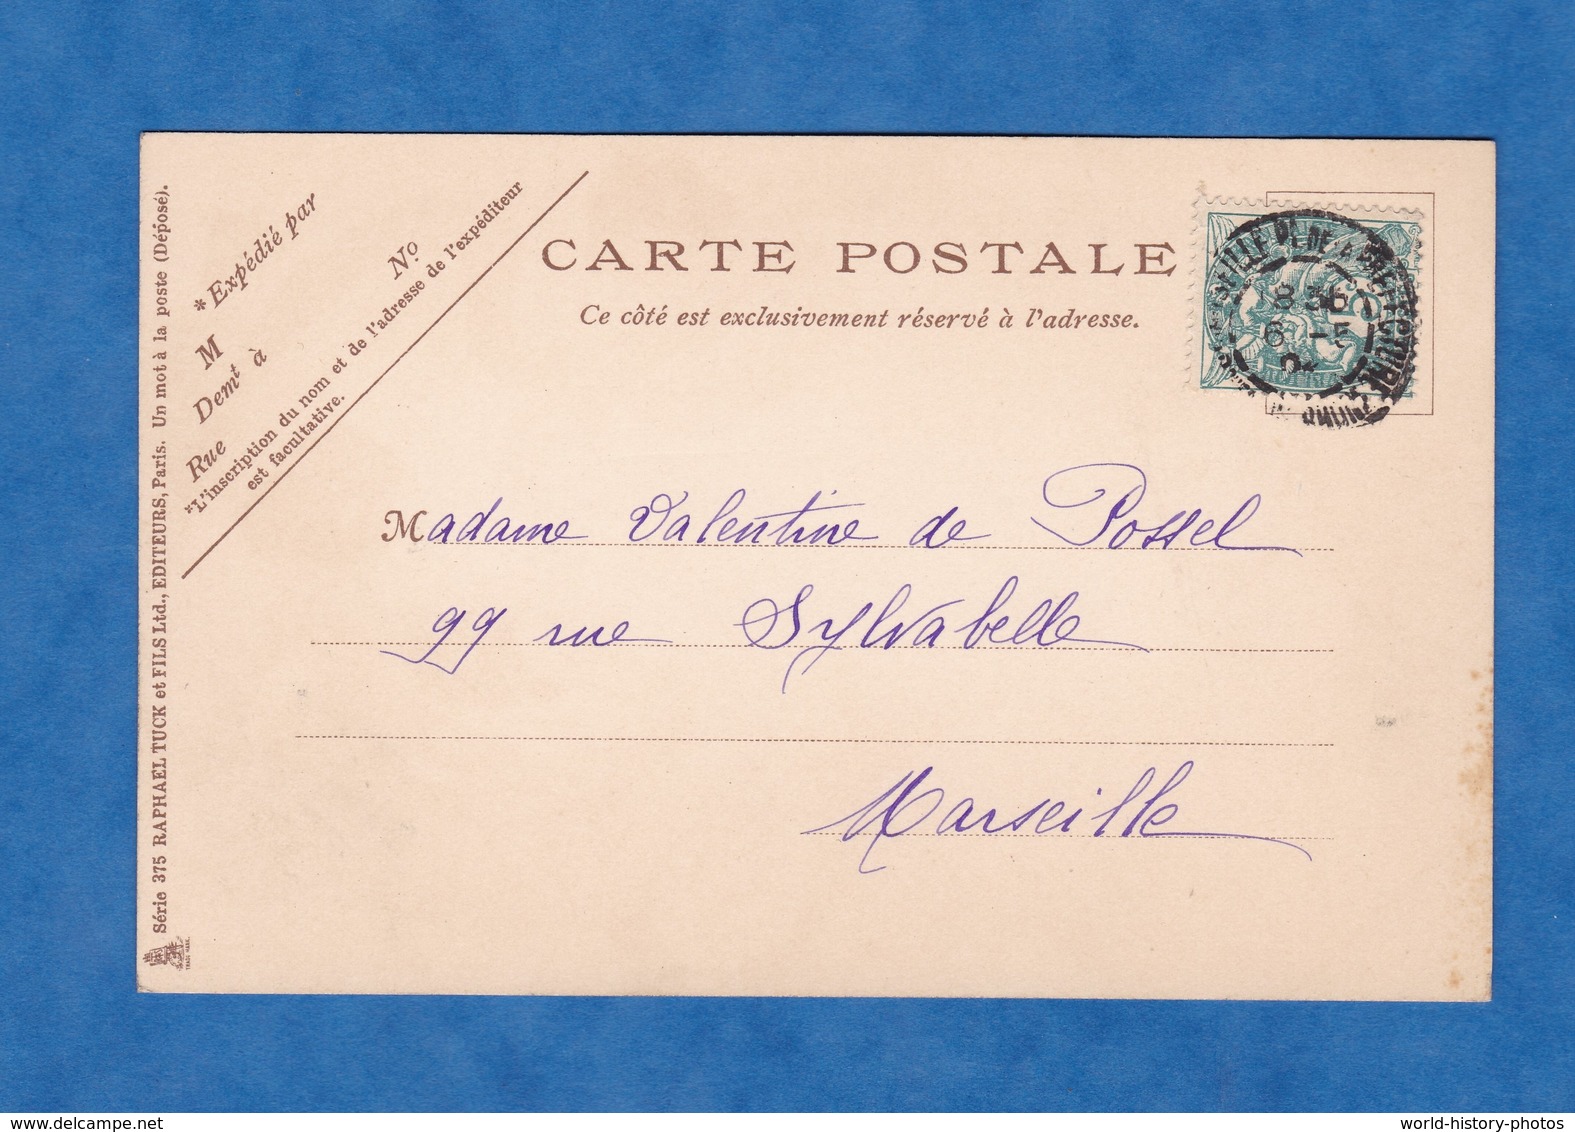 Série 375 RAPHAEL TUCK et FILS Ltd., EDITEURS, Paris. Un mot à la poste (Déposé).
TRADE MARK.
*Expédié par
M
Demt à
Rue
No
*L'inscription du nom et de l'adresse de l'expéditeur
est facultative.
CARTE POSTALE
Ce côté est exclusivement réservé à l'adresse.
Madame Valentine de Possel
99 rue Sylvabelle
Marseille
www.delcampe.net
world-history-photos